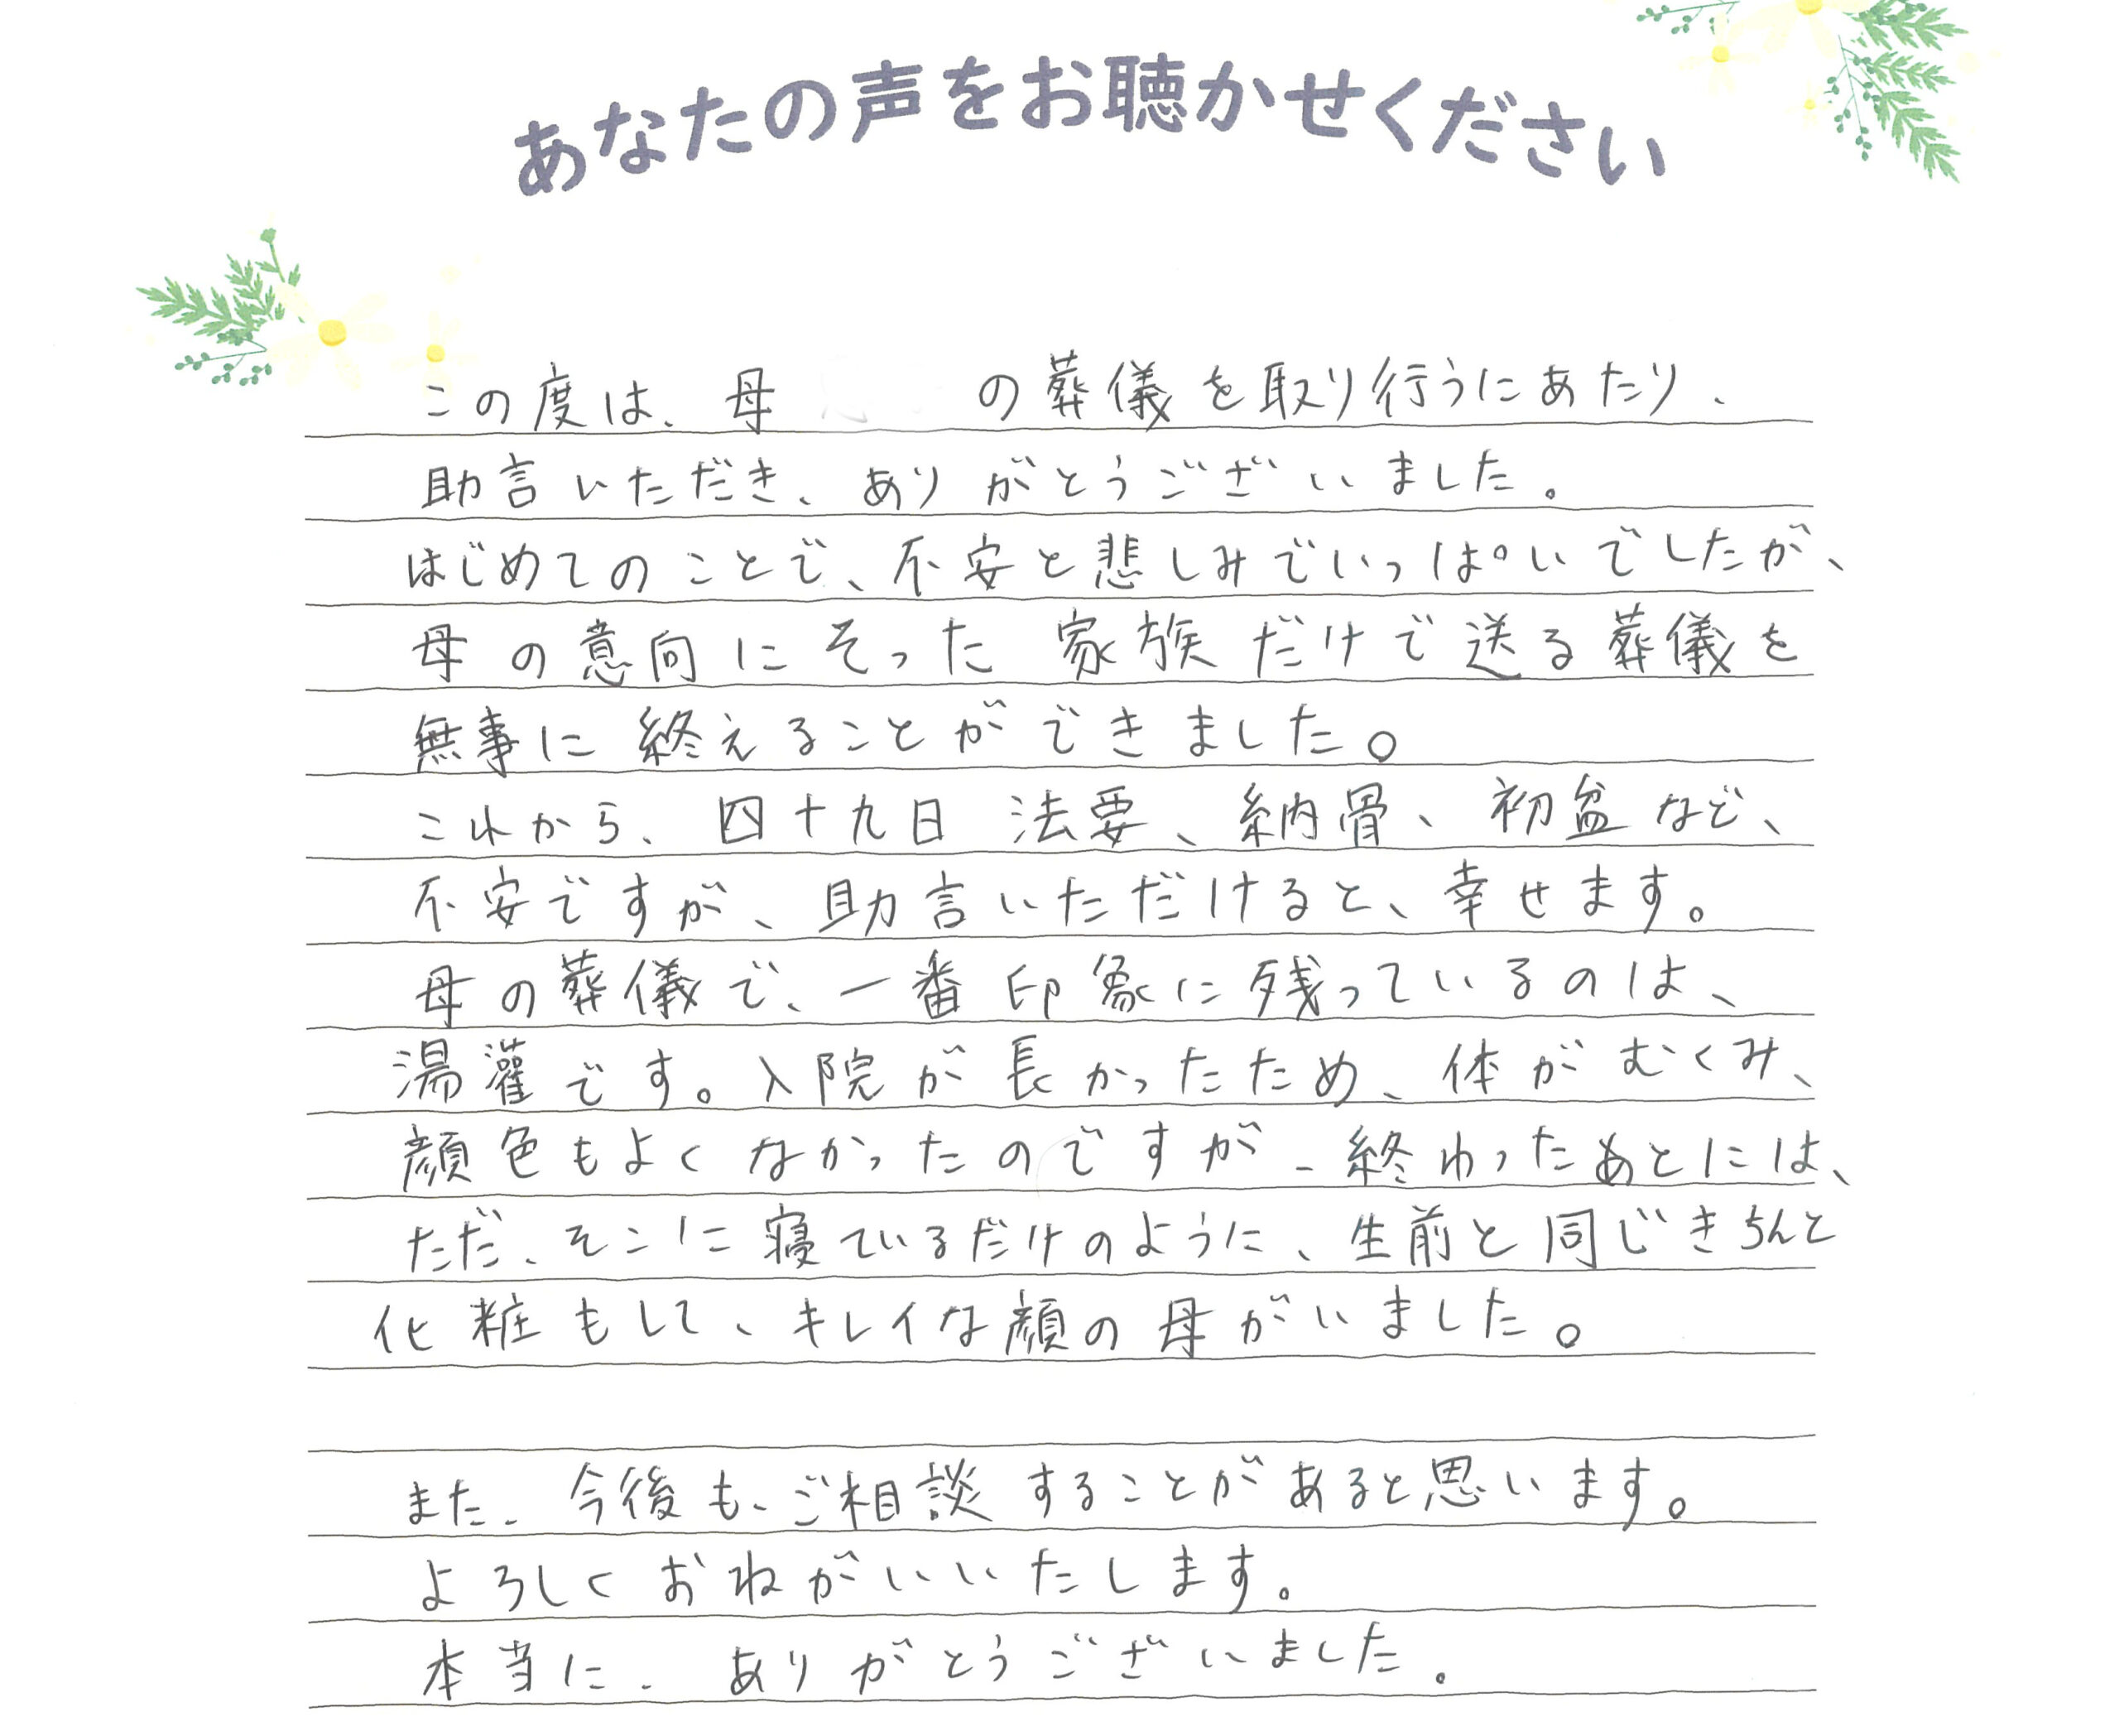 あなたの声をお聴かせください
この度は、母 の葬儀を取り行うにあたり、
助言いただき、ありがとうございました。
はじめてのことで、不安と悲しみでいっぱいでしたが、
母の意向にそった家族だけで送る葬儀を
無事に終えることができました。
これから、四十九日法要、納骨、初盆など、
不安ですが、助言いただけると、幸せます。
母の葬儀で、一番印象に残っているのは、
湯灌です。入院が長かったため、体がむくみ、
顔色もよくなかったのですが、終わったあとには、
ただ、そこに寝ているだけのように、生前と同じきちんと
化粧もして、キレイな顔の母がいました。
また、今後も、ご相談することがあると思います。
よろしくおねがいいたします。
本当に、ありがとうございました。